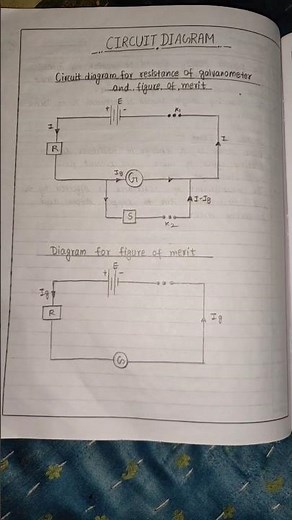 CIRCUIT DIAGRAM
Circuit diagram for resistance of galvanometer
and figure of merit
E
+ -
K1
I
R
I
Ig
G
I-Ig
S
K2
Diagram for figure of merit
E
+ -
Ig
R
Ig
G